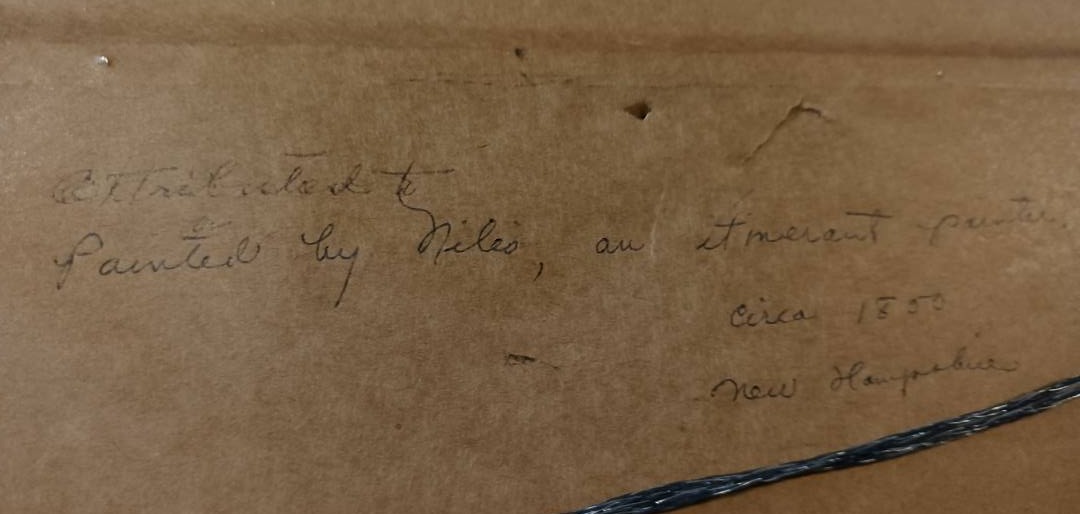 Attributed to
or
Painted by Niles, an itinerant painter,
circa 1850
New Hampshire